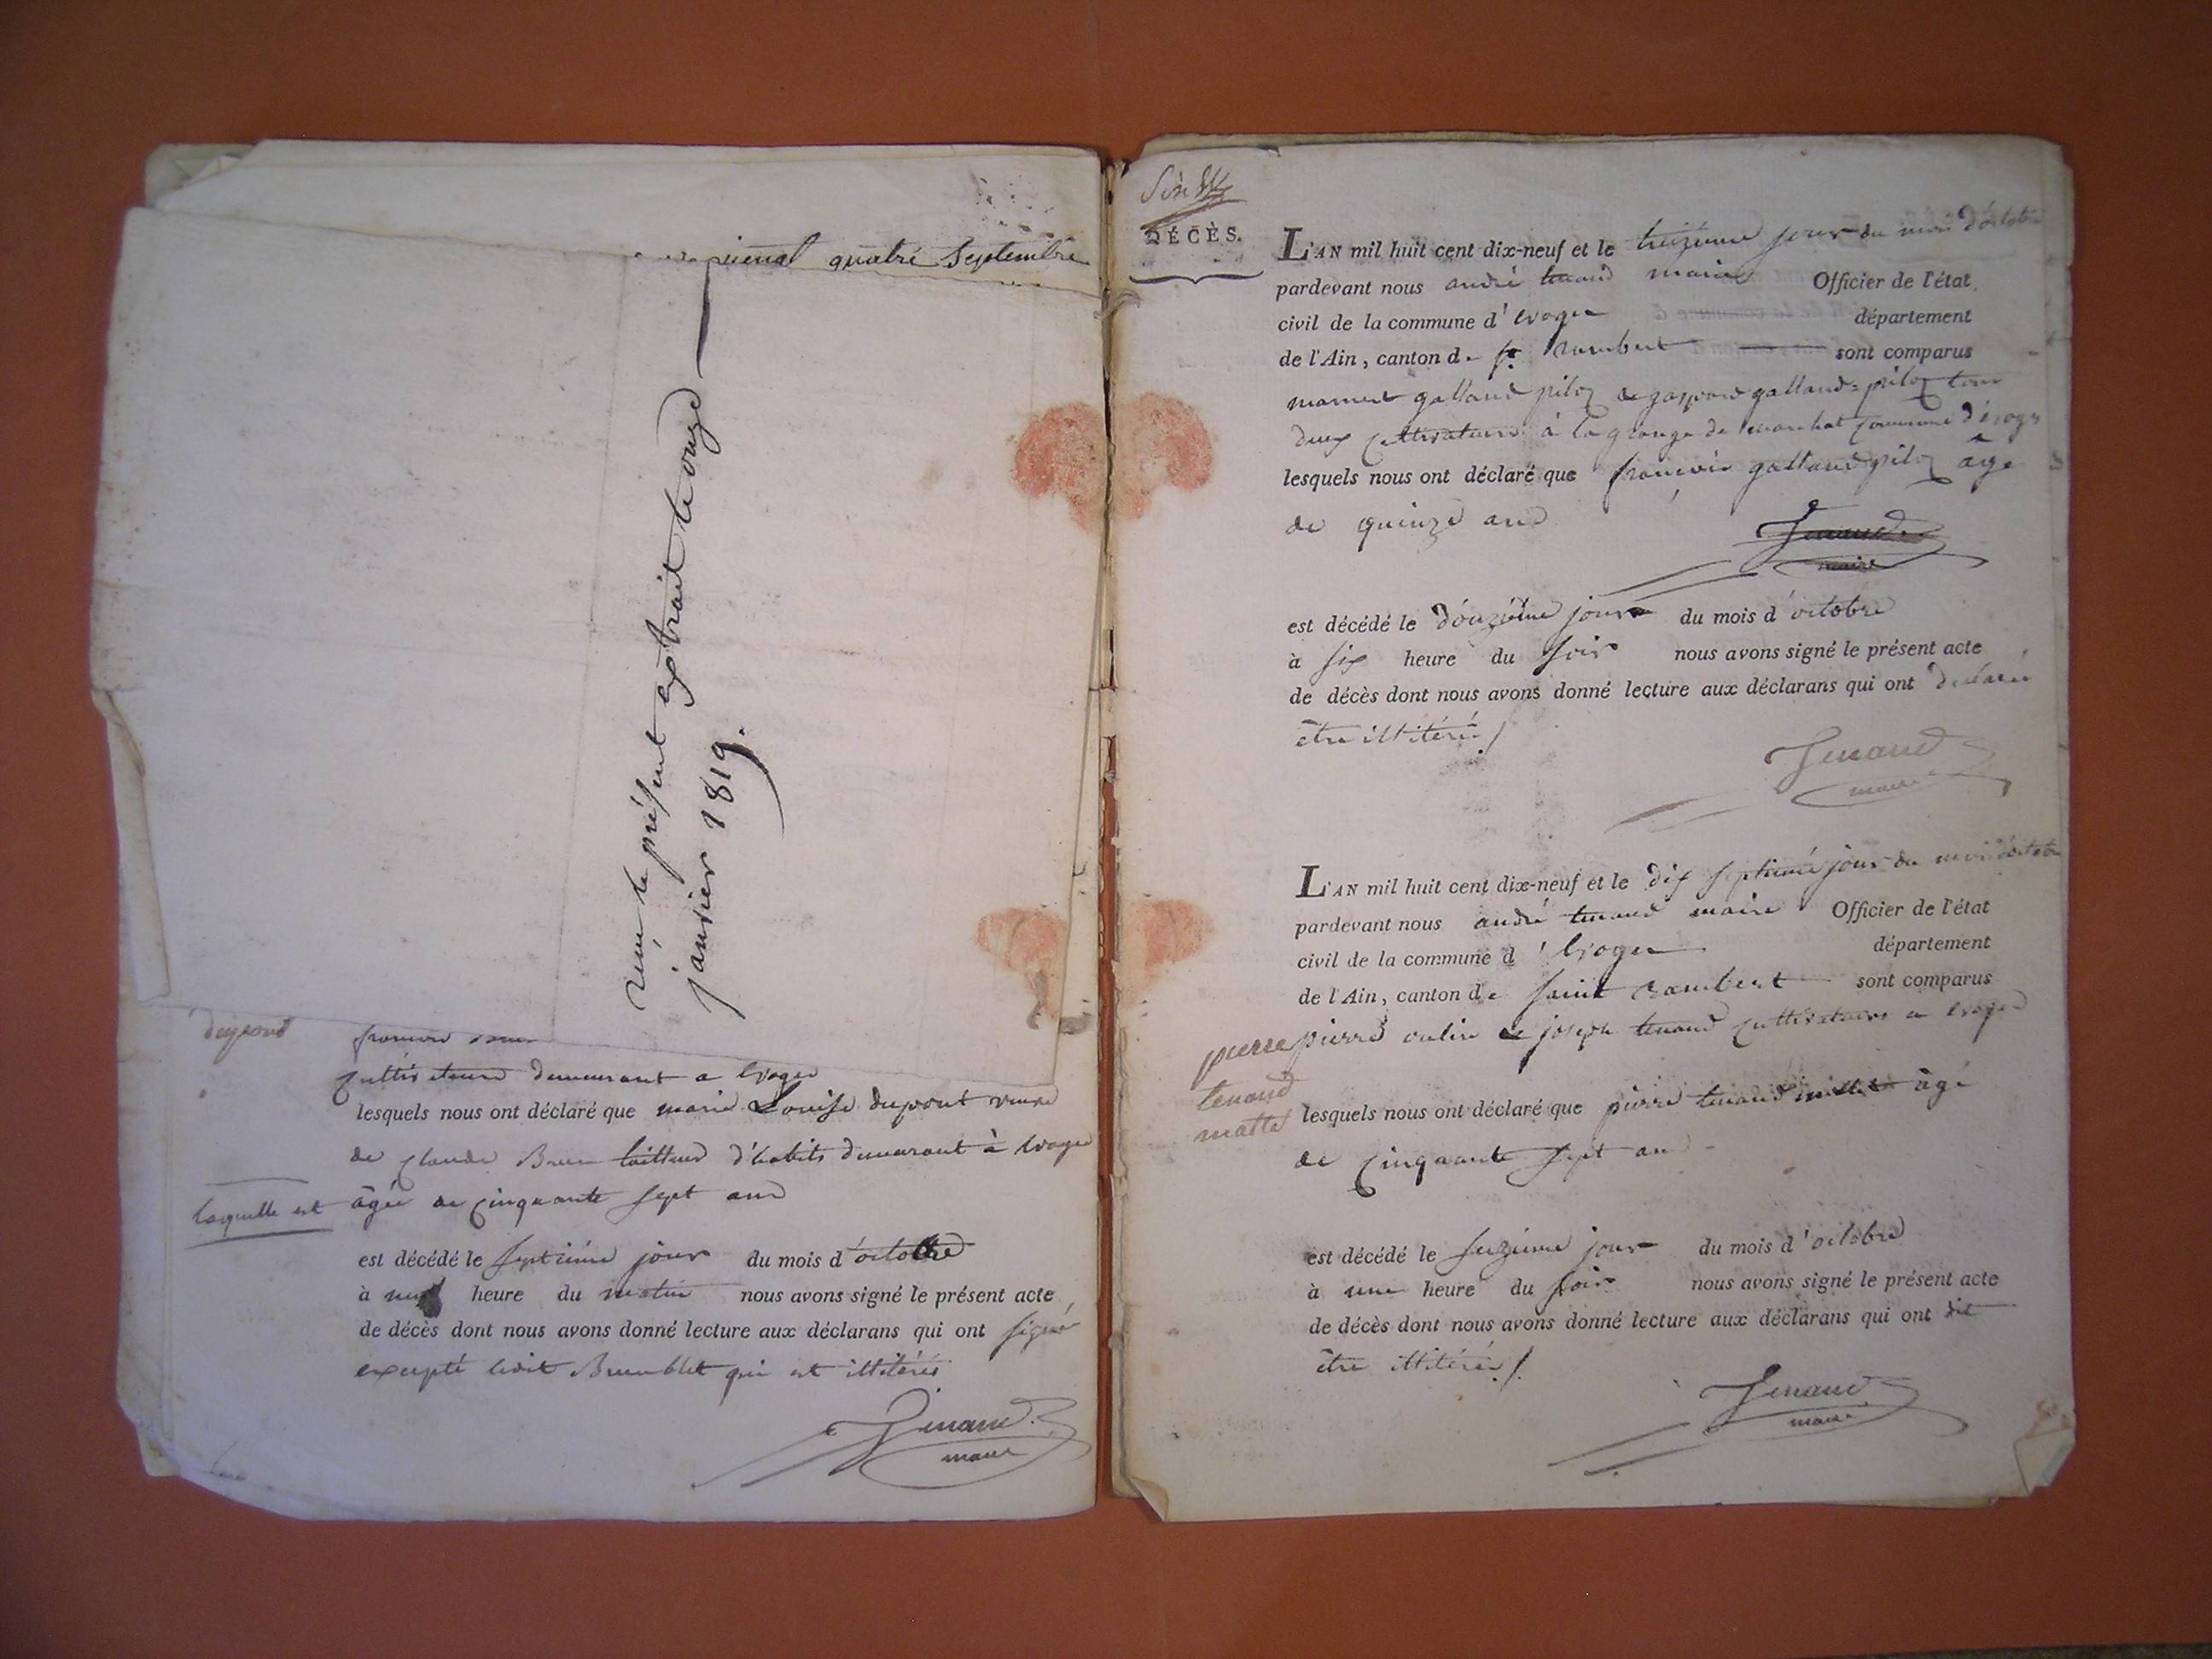 quatre Septembre
reçu le présent extrait le onze
janvier 1819.
dupont
cultivateurs demeurant a Evoges
lesquels nous ont déclaré que marie Louise dupont veuve
de claude Brun tailleur d'habits demeurant à Evoges
laquelle est âgée de cinquante sept ans
est décédé le septième jour du mois d'octobre
à heure du matin nous avons signé le présent acte
de décès dont nous avons donné lecture aux déclarans qui ont signé
excepté qui est illitéré
Tenand
maire
DÉCÈS.
L'AN mil huit cent dix-neuf et le treizième jour du mois d'octobre
pardevant nous andré tenand maire Officier de l'état
civil de la commune d'evoges département
de l'Ain, canton de st rambert sont comparus
galland piloz et gaspard galland=piloz tous
deux cultivateurs à la grange de marchat commune d'évoges
lesquels nous ont déclaré que françois galland piloz âgé
de quinze ans
Tenand
maire
est décédé le douzième jour du mois d'octobre
à six heure du soir nous avons signé le présent acte
de décès dont nous avons donné lecture aux déclarans qui ont déclaré
être illitérés
Tenand
maire
L'AN mil huit cent dix-neuf et le dix septième jour du mois d'octobre
pardevant nous andré tenand maire Officier de l'état
civil de la commune d'Evoges département
de l'Ain, canton de saint rambert sont comparus
pierre et joseph tenand cultivateurs a evoges
pierre
tenand
matte
lesquels nous ont déclaré que pierre tenand âgé
de cinquante sept ans
est décédé le seizième jour du mois d'octobre
à une heure du soir nous avons signé le présent acte
de décès dont nous avons donné lecture aux déclarans qui ont dit
être illitérés
Tenand
maire